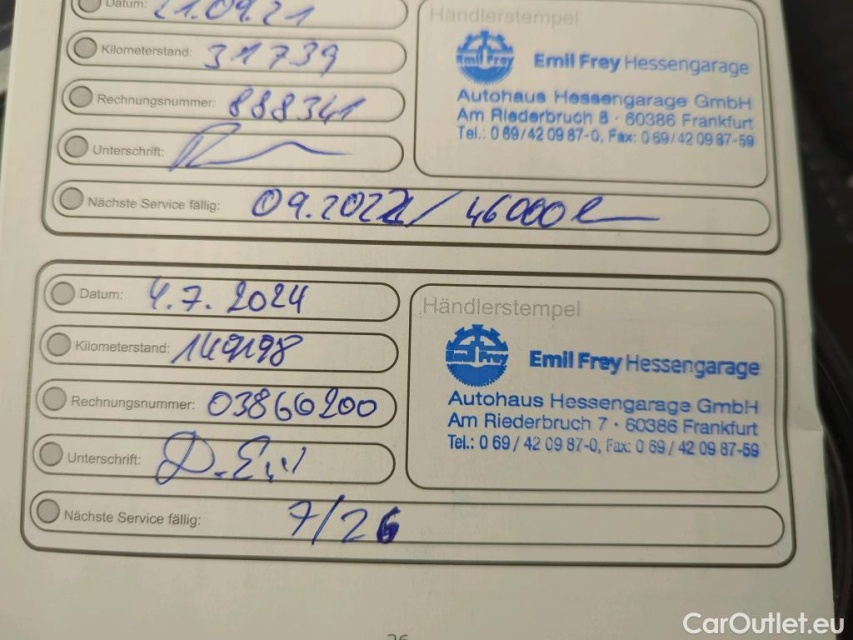 Datum: 21.09.21
Händlerstempel
Kilometerstand: 31739
Emil Frey
Emil Frey Hessengarage
Rechnungsnummer: 888341
Autohaus Hessengarage GmbH
Am Riederbruch 8 · 60386 Frankfurt
Tel.: 0 69 / 42 09 87-0, Fax: 0 69 / 42 09 87-59
Unterschrift:
Nächste Service fällig: 09.2022 / 46000
Datum: 4.7.2024
Händlerstempel
Kilometerstand: 149198
Emil Frey
Emil Frey Hessengarage
Rechnungsnummer: 03860200
Autohaus Hessengarage GmbH
Am Riederbruch 7 · 60386 Frankfurt
Tel.: 0 69 / 42 09 87-0, Fax: 0 69 / 42 09 87-59
Unterschrift:
Nächste Service fällig: 7/26
CarOutlet.eu